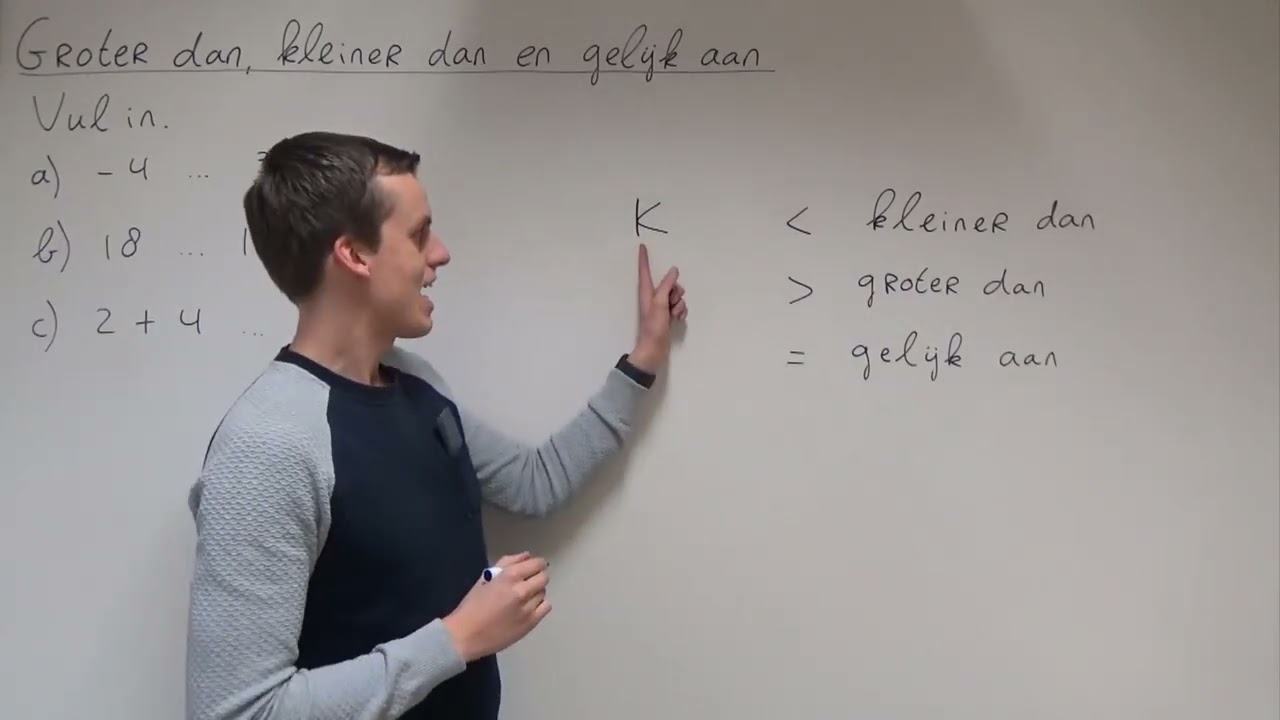 Groter dan, kleiner dan en gelijk aan
Vul in.
a) -4 ...
b) 18 ... 1
c) 2 + 4 ...
K
< kleiner dan
> groter dan
= gelijk aan